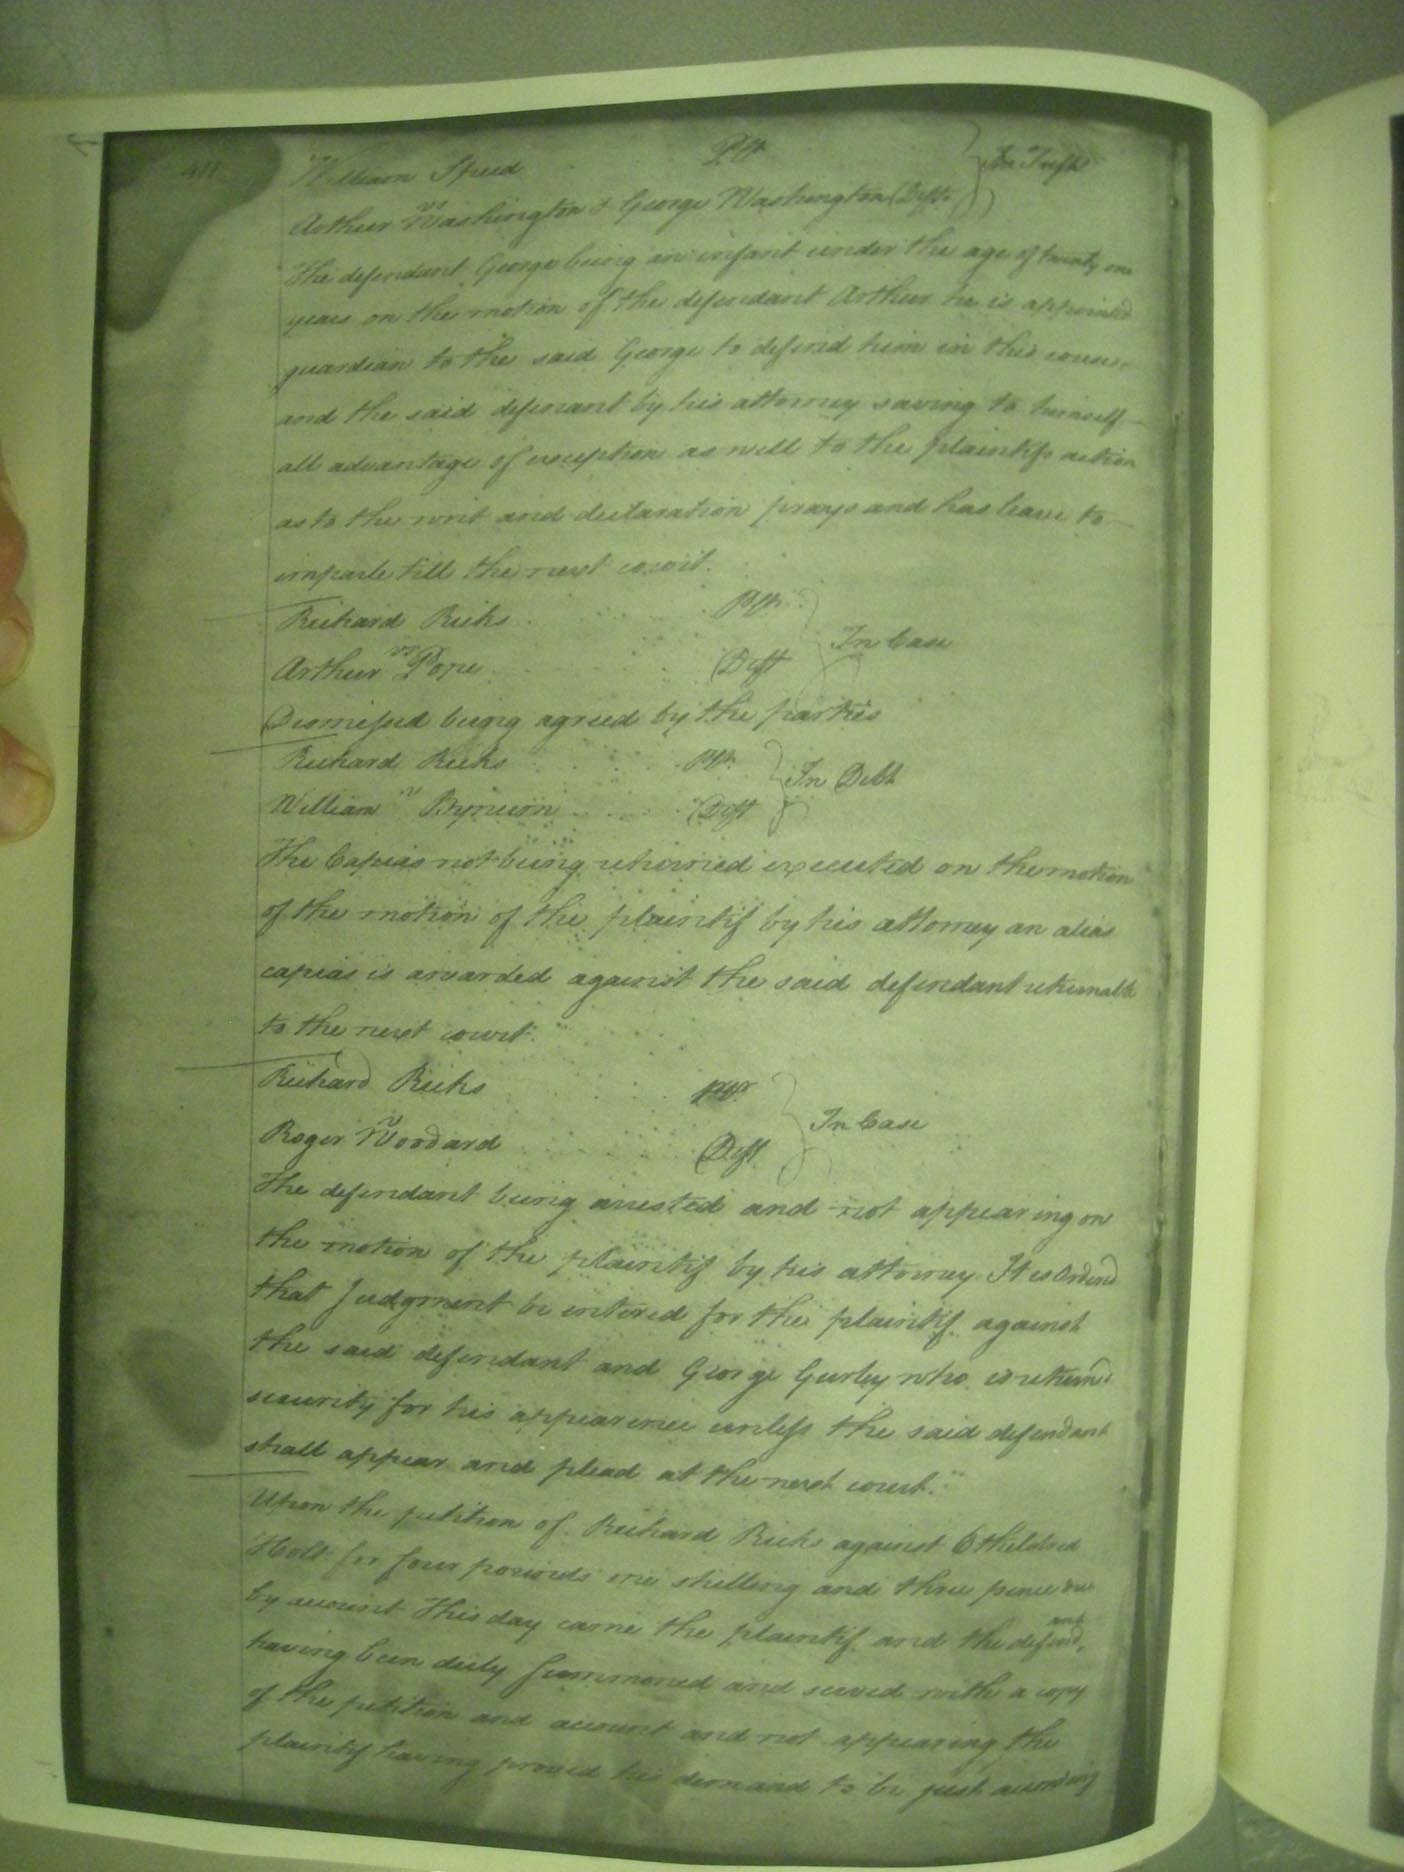 411
William Speed Plt
vs
Arthur Washington & George Washington Defts
In Tresps
The defendant George being an infant under the age of twenty one
years on the motion of the defendant Arthur he is appointed
guardian to the said George to defend him in this couse,
and the said defenant by his attorney saving to himself
all advantage of exception as well to the plaintifs action
as to the writ and declaration prays and has leave to
imparle till the next court.
Richard Ricks Plt
vs
Arthur Pope Deft
In Case
Dismissed being agreed by the parties
Richard Ricks Plt
v
William Bynum Deft
In Debt
The Capias not being returned executed on the motion
of the motion of the plaintif by his attorney an alias
capias is awarded against the said defendant returnable
to the next court.
Richard Ricks Plt
v
Roger Woodard Deft
In Case
The defendant being arrested and not appearing on
the motion of the plaintif by his attorney It is Ordered
that Judgment be entered for the plaintif against
the said defendant and George Gurley who is returnd
security for his appearence unless the said defendant
shall appear and plead at the next court.
Upon the petition of Richard Ricks against Othildred
Holt for four pounds one shilling and three pence due
by account This day came the plaintif and the defend,
ant
having been duly summoned and served with a copy
of the petition and account and not appearing the
plaintif having proved his demand to be just according